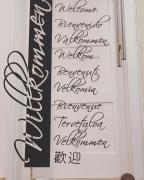 Willkommen
Welcome
Bienvenido
Välkommen
Welkom
Benvenuti
Velkomin
Bienvenue
Tervetuloa
Velkommen
歡迎